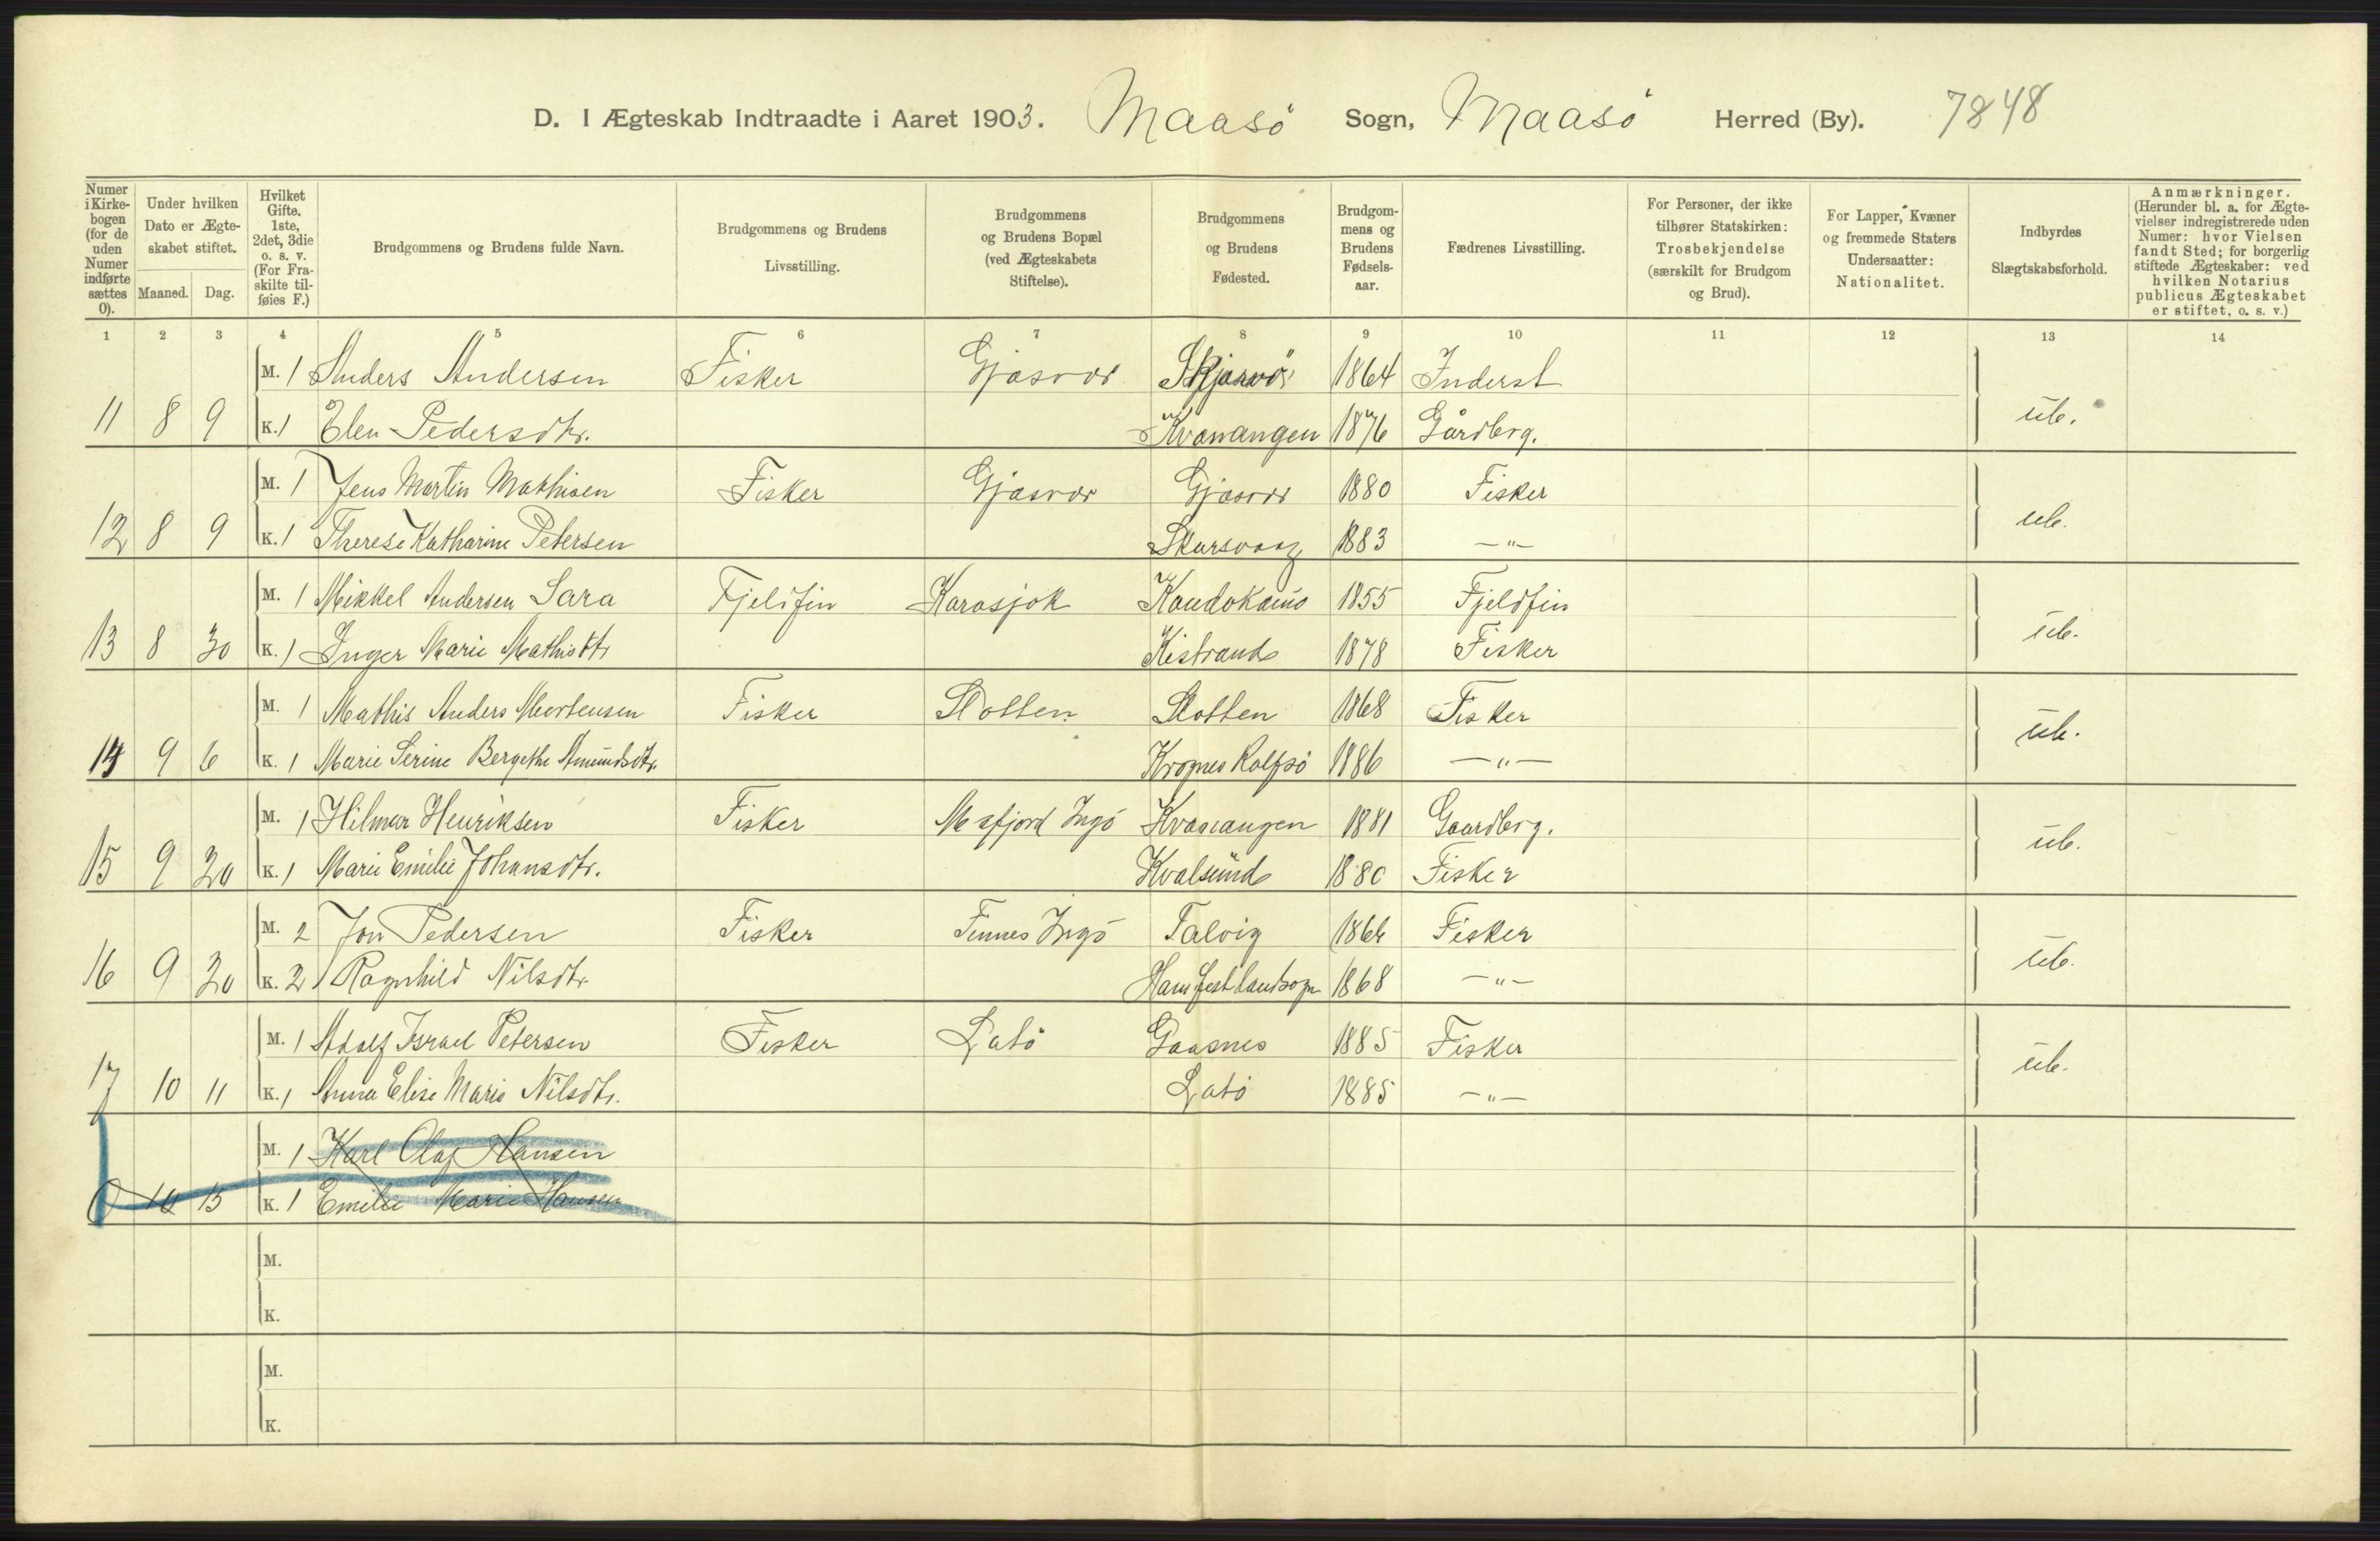 D. I Ægteskab Indtraadte i Aaret 1903. Maasö Sogn, Maasö Herred (By). 7848
Numer i Kirke-bogen (for de uden Numer indførte sættes 0).
Under hvilken Dato er Ægte-skabet stiftet.
Maaned. Dag.
Hvilket Gifte. 1ste, 2det, 3die o. s. v. (For Fra-skilte til-føies F.)
Brudgommens og Brudens fulde Navn.
Brudgommens og Brudens Livsstilling.
Brudgommens og Brudens Bopæl (ved Ægteskabets Stiftelse).
Brudgommens og Brudens Fødested.
Brudgom-mens og Brudens Fødsels-aar.
Fædrenes Livsstilling.
For Personer, der ikke tilhører Statskirken: Trosbekjendelse (særskilt for Brudgom og Brud).
For Lapper, Kvæner og fremmede Staters Undersaatter: Nationalitet.
Indbyrdes Slægtskabsforhold.
Anmærkninger. (Herunder bl. a. for Ægte-vielser indregistrerede uden Numer: hvor Vielsen fandt Sted; for borgerlig stiftede Ægteskaber: ved hvilken Notarius publicus Ægteskabet er stiftet, o. s. v.)
1 2 3 4 5 6 7 8 9 10 11 12 13 14
M. 1 Anders Andersen Fisker Gjæsvær Skjærvö 1864 Inderst
11 8 9 K. 1 Elen Pedersdtr. Kvænangen 1876 Gårdbrg. ub.
M. 1 Jens Martin Mathisen Fisker Gjæsvær Gjæsvær 1880 Fisker
12 8 9 K. 1 Therese Katharine Petersen Skarsvaag 1883 —"— ub.
M. 1 Mikkel Andersen Sara Fjeldfin Karasjok Kaudokeino 1855 Fjeldfin
13 8 30 K. 1 Inger Marie Mathisdtr Kistrand 1878 Fisker ub.
M. 1 Mathis Anders Mortensen Fisker Slotten Slotten 1868 Fisker
14 9 6 K. 1 Marie Serine Bergethe Amundsdtr. Krognes Rolfsö 1886 —"— ub.
M. 1 Hilmar Henriksen Fisker Mafjord Ingö Kvænangen 1881 Gaardbrg.
15 9 20 K. 1 Marie Emilie Johansdtr. Kvalsund 1880 Fisker ub.
M. 2 Jon Pedersen Fisker Finnes Ingö Talvig Fisker
16 9 20 K. 2 Ragnhild Nilsdtr. Hamfest landsogn 1868 —"— ub.
M. 1 Adolf Israel Petersen Fisker Latö Gaasnes 1885 Fisker
17 10 11 K. 1 Anna Elise Marie Nilsdtr. Latö 1885 —"— ub.
M. 1 Karl Olaf Hansen
0 10 15 K. 1 Emilie Marie Hansen
M.
K.
M.
K.